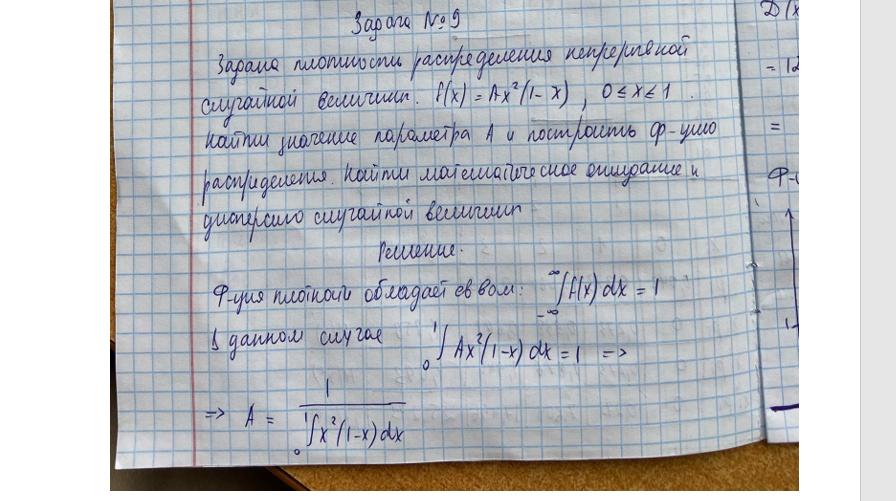 Задача №9
Задана плотность распределения непрерывной
случайной величины. f(x) = Ax²(1-x), 0≤x≤1.
Найти значение параметра A и построить ф-цию
распределения. Найти математическое ожидание и
дисперсию случайной величины
Решение.
Ф-ция плотности обладает св-вом: ∫_{-∞}^{∞} f(x)dx = 1
В данном случае ∫_0^1 Ax²(1-x)dx = 1 =>
=> A = 1 / ∫_0^1 x²(1-x)dx
D(x
= 12
=
Ф-ц
1